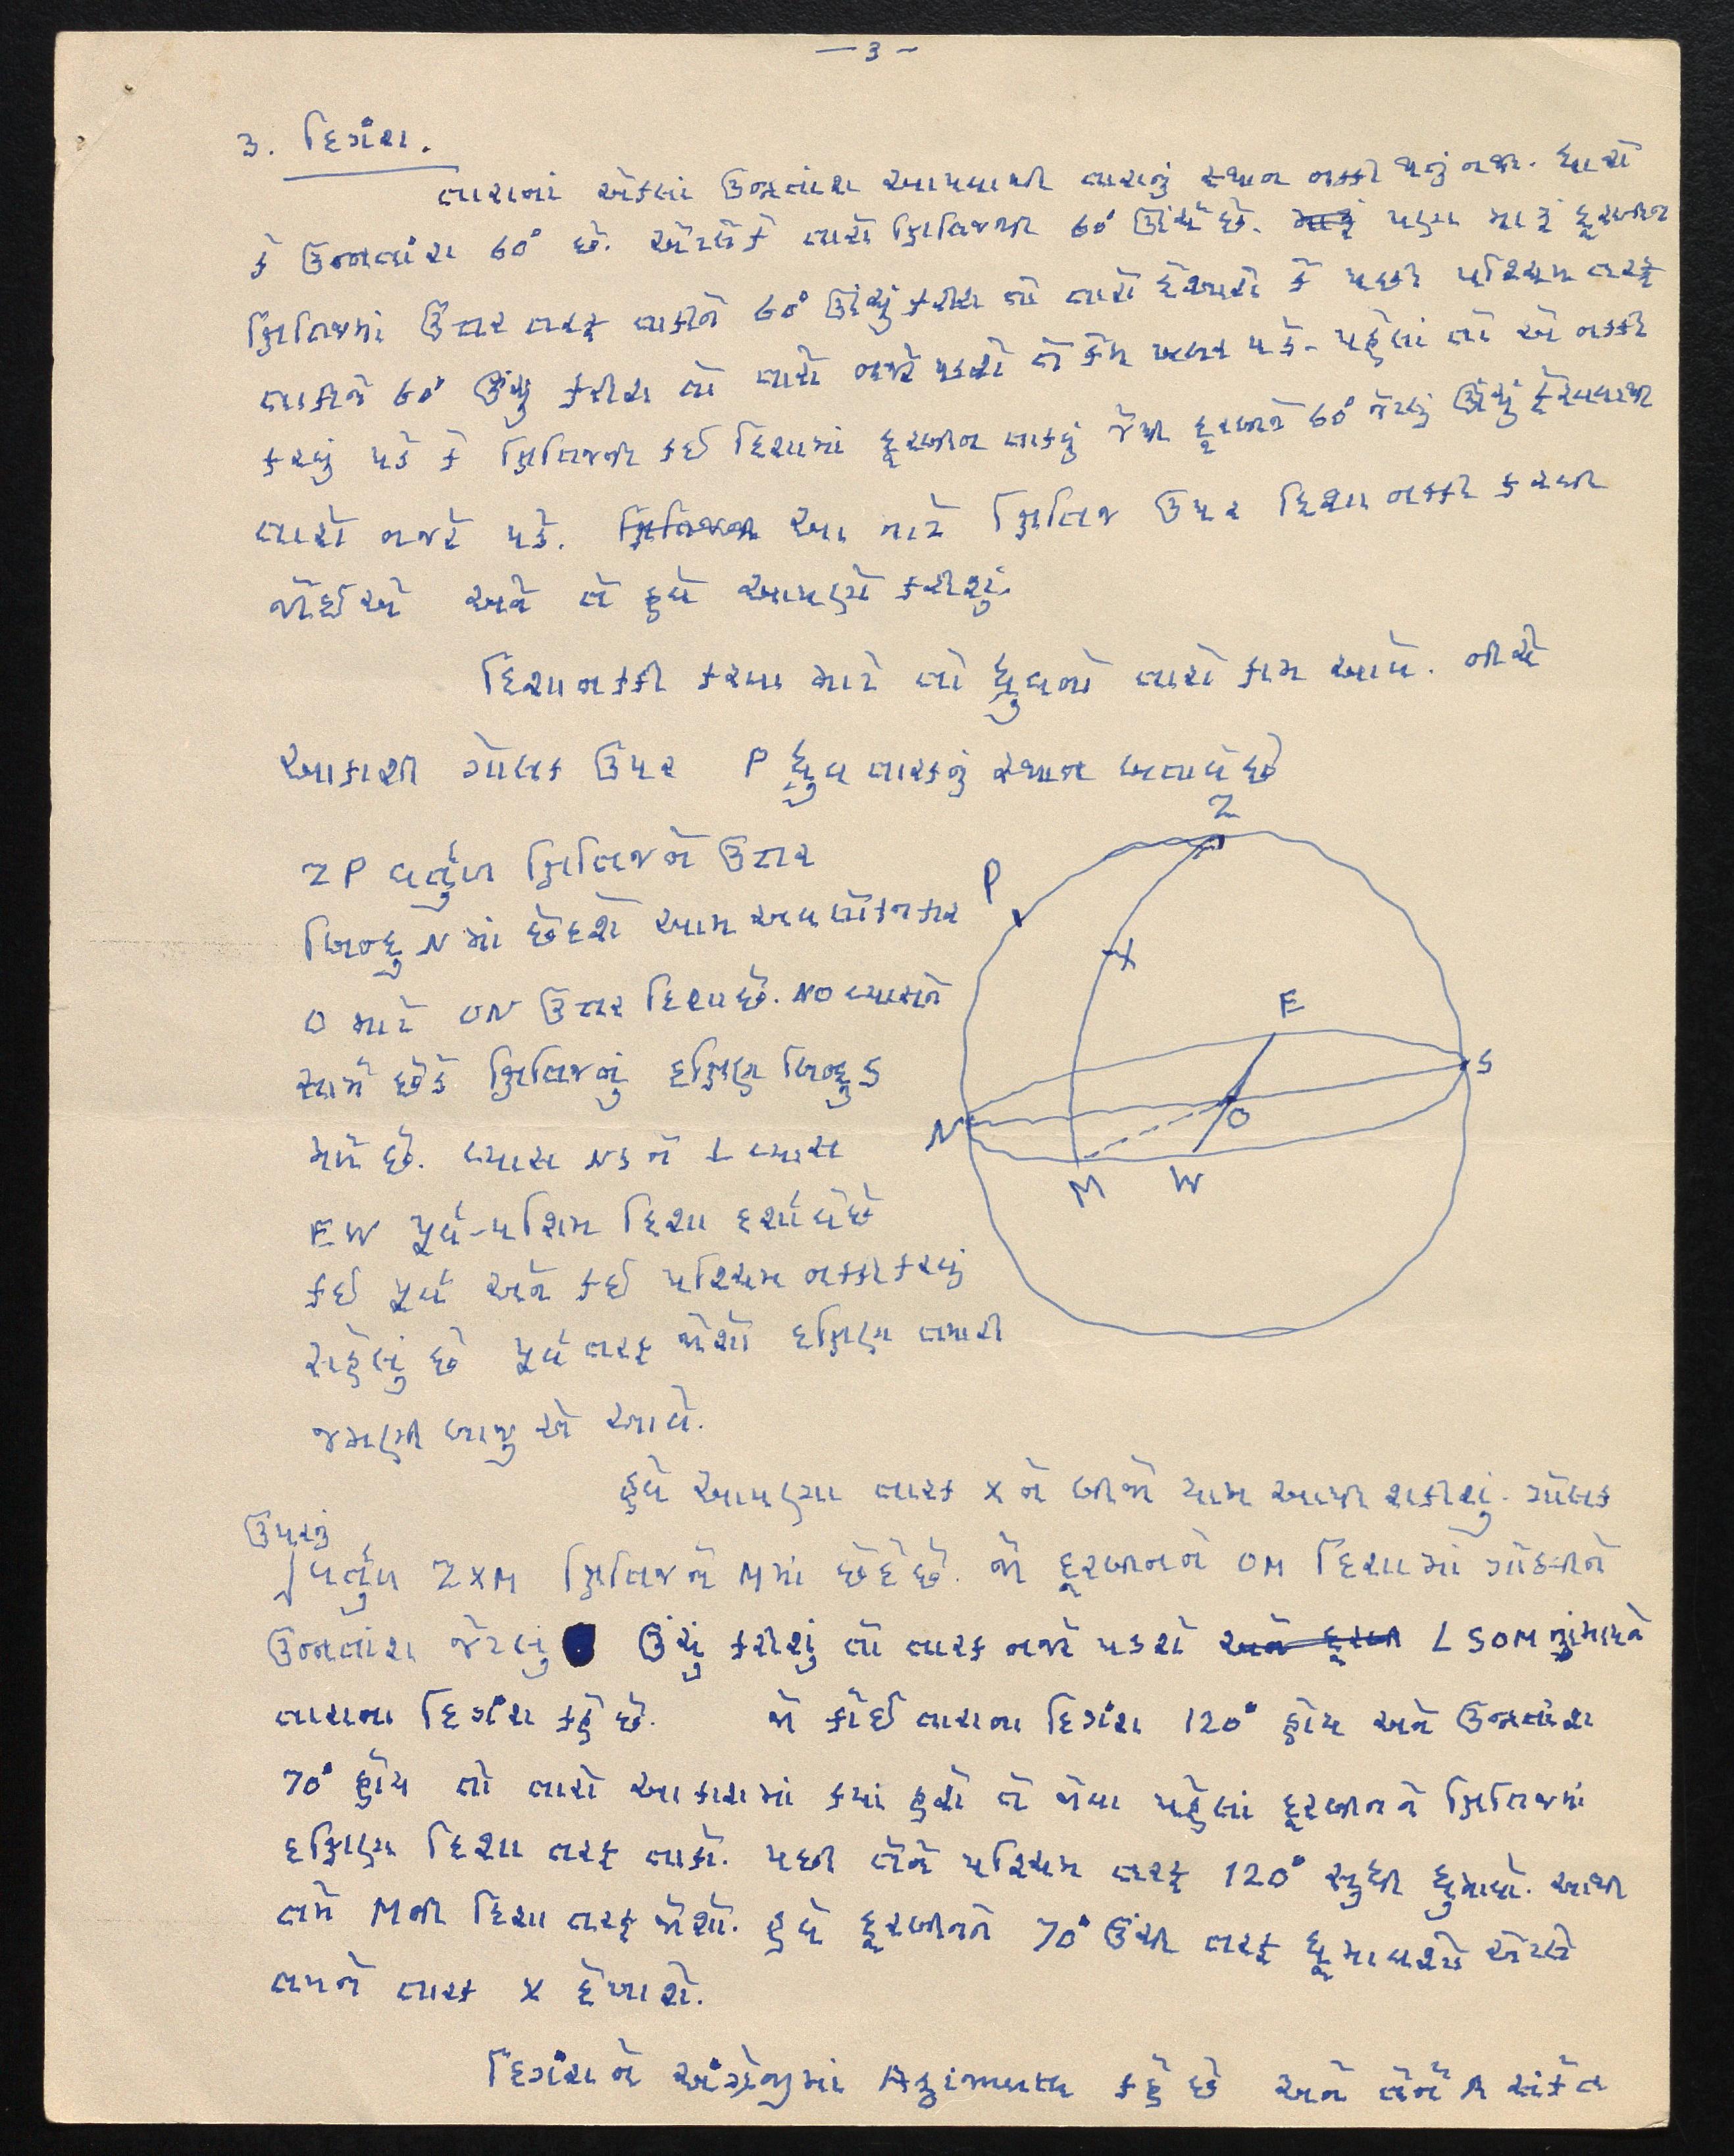 — 3 —
3. દિગંશ.
તારાના એકલા ઉન્નતાંશ આપવાથી તારાનું સ્થાન નક્કી થતું નથી. ધારો
કે ઉન્નતાંશ 60° છે. એટલે કે તારો ક્ષિતિજથી 60° ઉંચે છે. પણ મારૂં દૂરબીન
ક્ષિતિજમાં ઉત્તર તરફ તાકીને 60° ઉંચું કરીશ તો તારો દેખાશે કે પછી પશ્ચિમ તરફ
તાકીને 60° ઉંચુ કરીશ તો તારો નજરે પડશે તે કેમ ખબર પડે. પહેલાં તો એ નક્કી
કરવું પડે કે ક્ષિતિજની કઈ દિશામાં દૂરબીન તાકવું જેથી દૂરબીનને 60° જેટલું ઉંચું ફેરવવાથી
તારો નજરે પડે. આ માટે ક્ષિતિજ ઉપર દિશા નક્કી કરવી
જોઈએ અને તે હવે આપણે કરીશું.
દિશા નક્કી કરવા માટે તો ધ્રુવનો તારો કામ આવે. નીચે
આકાશી ગોલક ઉપર P ધ્રુવ તારકનું સ્થાન બતાવે છે
Z
ZP વર્તુળ ક્ષિતિજને ઉત્તર
P
બિન્દુ N માં છેદશે આમ અવલોકનકાર
X
O માટે ON ઉત્તર દિશા છે. NO વ્યાસને
E
સામે છેડે ક્ષિતિજનું દક્ષિણ બિન્દુ S
S
O
N
મળે છે. વ્યાસ NS ને ⊥ વ્યાસ
M W
EW પૂર્વ-પશ્ચિમ દિશા દર્શાવે છે
કઈ પૂર્વ અને કઈ પશ્ચિમ નક્કી કરવું
સહેલું છે પૂર્વ તરફ જોશો દક્ષિણ તમારી
જમણી બાજુ એ આવે.
હવે આપણા તારક X ને બીજો યામ આપી શકીશું. ગોલક
ઉપરનું
વર્તુળ ZXM ક્ષિતિજને M માં છેદે છે. જો દૂરબીનને OM દિશામાં ગોઠવીને
ઉન્નતાંશ જેટલું ઉંચું કરીશું તો તારક નજરે પડશે ∠SOM
તારાના દિગંશ કહે છે. જો કોઈ તારાના દિગંશ 120° હોય અને ઉન્નતાંશ
70° હોય તો તારો આકાશમાં ક્યાં હશે તે જોવા પહેલાં દૂરબીનને ક્ષિતિજમાં
દક્ષિણ દિશા તરફ તાકો. પછી તેને પશ્ચિમ તરફ 120° સુધી ઘુમાવો. આથી
તમે M ની દિશા તરફ જોશો. હવે દૂરબીનને 70° ઉંચે તરફ ઘુમાવશો એટલે
તમને તારક X દેખાશે.
દિગંશને અંગ્રેજીમાં Azimuth કહે છે અને તેને A સંકેત